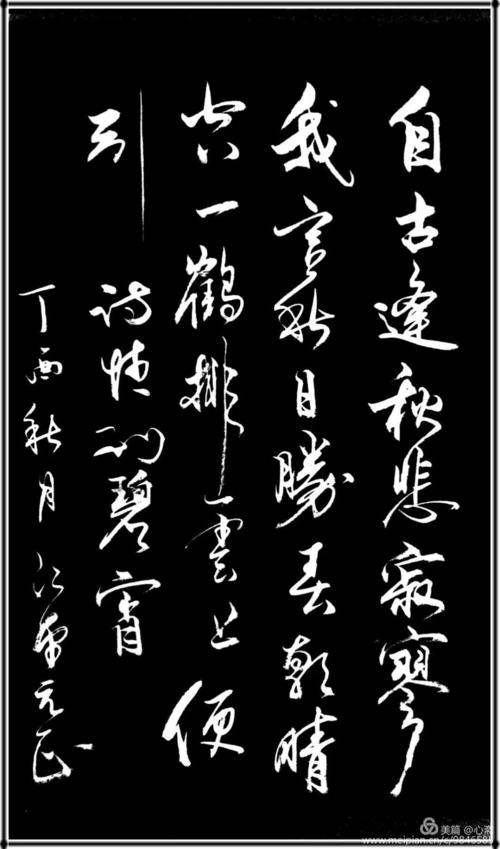 自古逢秋悲寂寥
我言秋日勝春朝晴
空一鶴排雲上便
引詩情到碧霄
丁酉秋月
美篇 @心
www.meipian.cn/c/984658